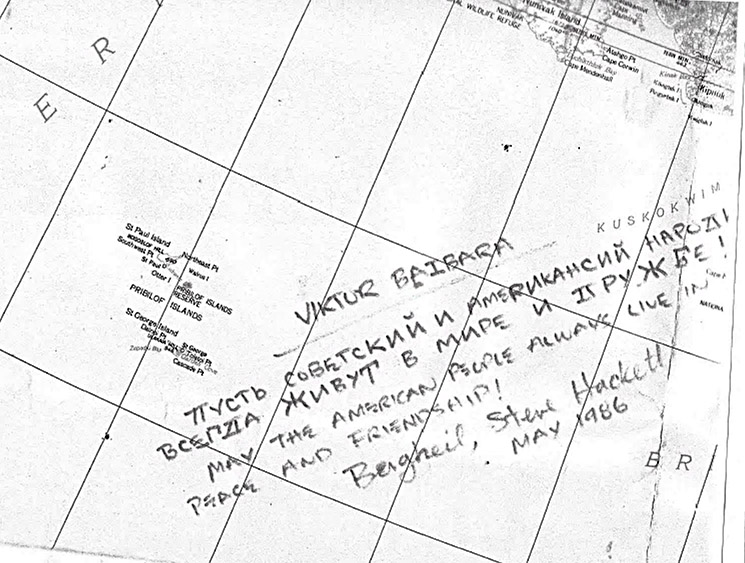 Nunivak Island
NUNIVAK
WILDLIFE REFUGE
Cape Mendenhall
Cape Corwin
Kipnuk
E R
KUSKOKWIM
St Paul Island
Northeast Pt
Southwest Pt
St Paul
Walrus I
Otter I
PRIBILOF ISLANDS
RESERVE
PRIBILOF ISLANDS
St George Island
Dalnoi Pt
St George
Tolstoi Pt
Cascade Pt
NATIONAL
VIKTUR BAIBARA
ПУСТЬ СОВЕТСКИЙ И АМЕРИКАНСИЙ НАРОДЫ
ВСЕГДА ЖИВУТ В МИРЕ И ДРУЖБЕ!
MAY THE AMERICAN PEOPLE ALWAYS LIVE IN
PEACE AND FRIENDSHIP!
Bergheil, Steve Hackett
MAY 1986
B R I